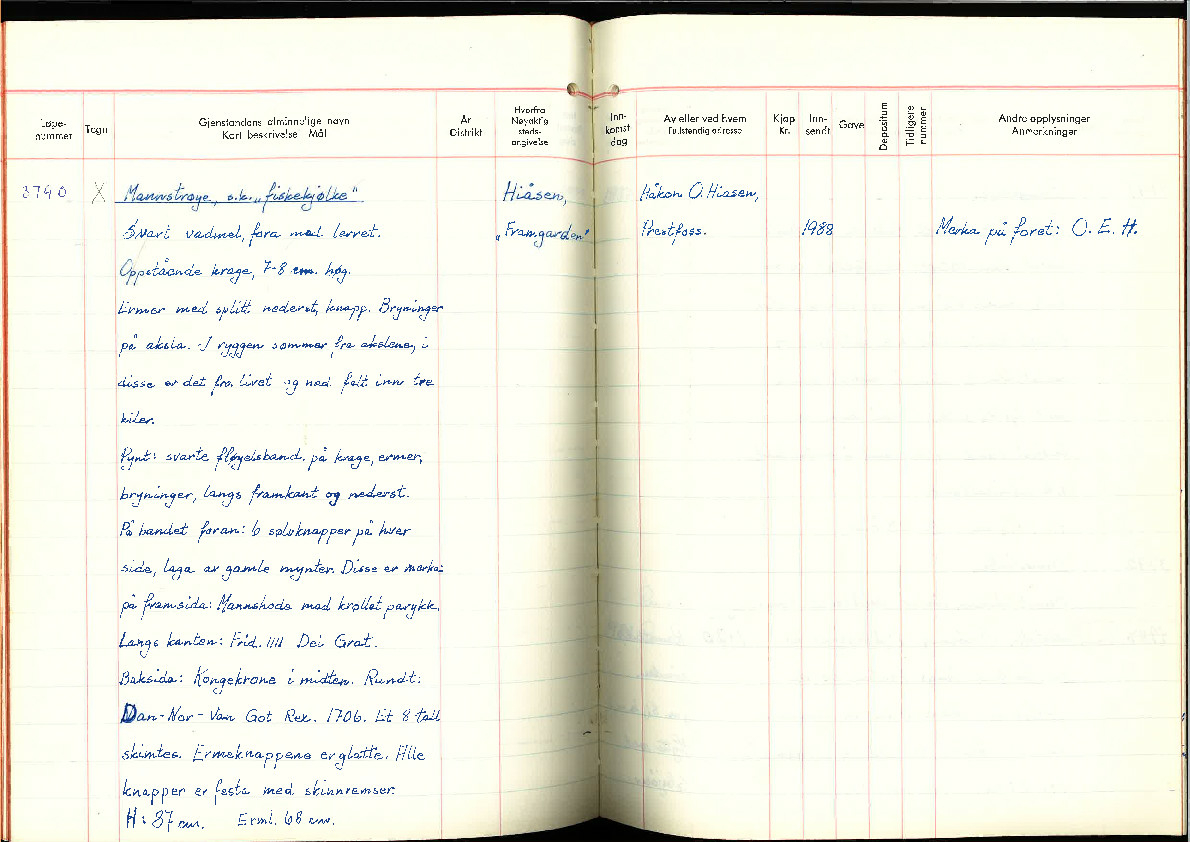 Løpe-
nummer
Tegn
Gjenstandens alminnelige navn
Kort beskrivelse Mål
År
Distrikt
Hvorfra
Nøyaktig
steds-
angivelse
Inn-
komst
dag
Av eller ved hvem
Fullstendig adresse
Kjøp
Kr.
Inn-
sendt
Gave
Depositum
Tidligere
nummer
Andre opplysninger
Anmerkninger
3740 X Mannstrøye, s.k. „fiskekjolke" Hiåsen, Håkon O. Hiåsen,
Svart vadmel, fora med lerret. „Framgarden" Prestfoss. 1988 Merka på foret: O. E. H.
Oppstående krage, 7-8 cm. høg.
Ermer med splitt nederst, knapp. Bryninger
på aksla. I ryggen sømmer fra akslene, i
disse er det fra livet og ned felt inn tre
kiler.
Pynt: svarte fløyelsband på krage, ermer,
bryninger, langs framkant og nederst.
På bandet foran: 6 sølvknapper på hver
side, laga av gamle mynter. Disse er merka:
på framsida: Mannshode med krøllet parykk.
Langs kanten: Frid. IIII Dei Grat.
Baksida: Kongekrone i midten. Rundt:
Dan-Nor-Van Got Rex. 1706. Et 8 tall
skimtes. Ermeknappene er glatte. Alle
knapper er festa med skinnremser.
H: 87 cm. Erml. 68 cm.